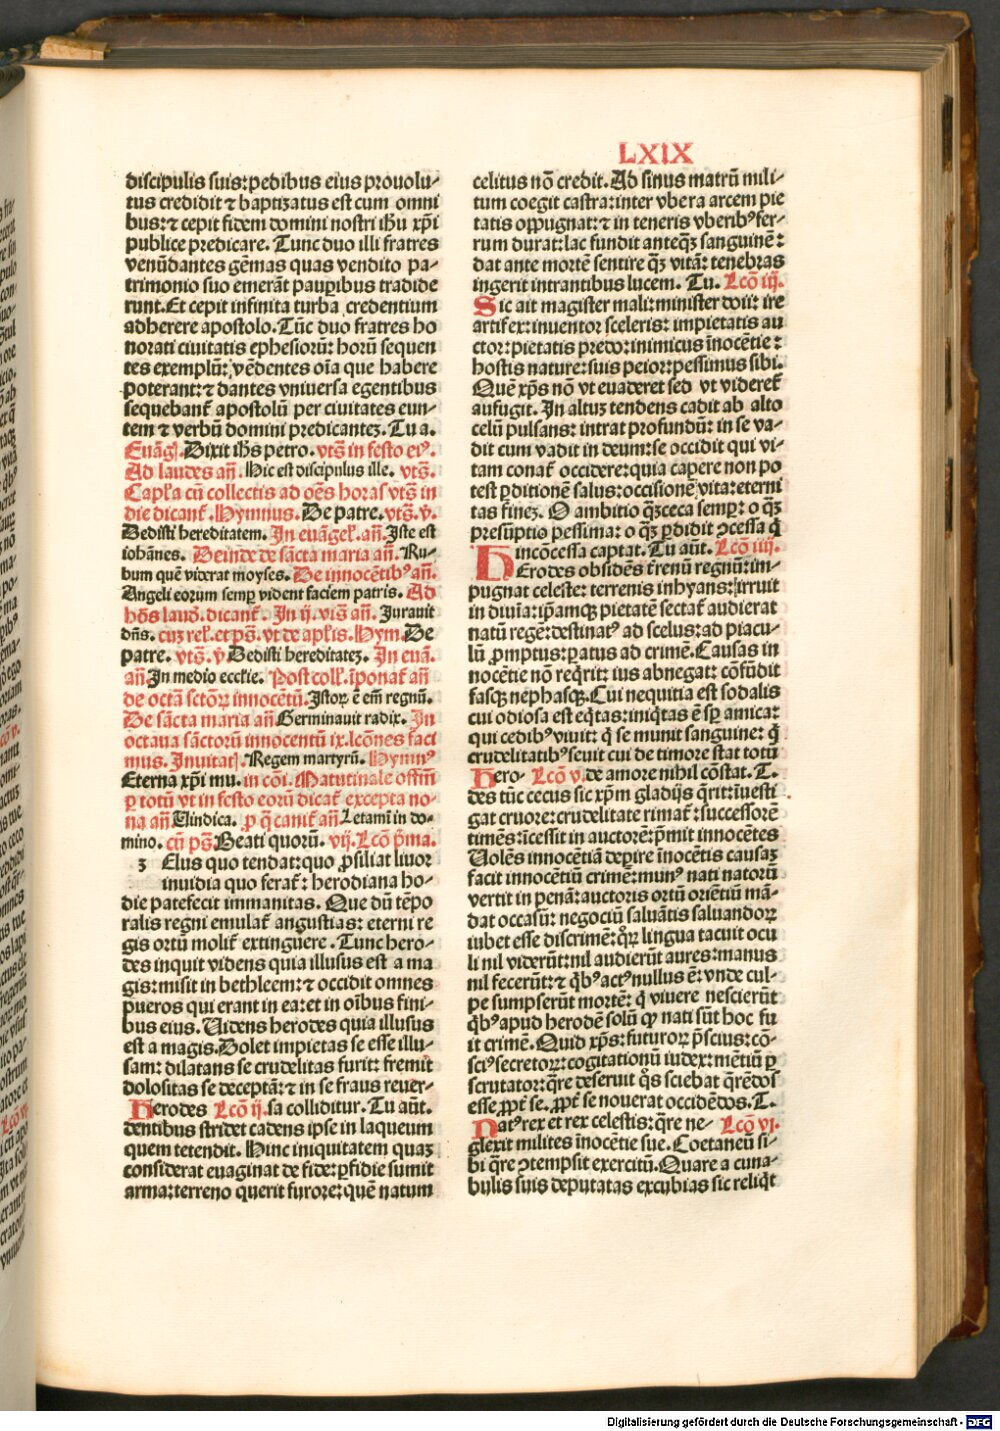 LXIX
discipulis suis: pedibus eius prouolu-
tus credidit ⁊ baptizatus est cum omni
bus: ⁊ cepit fidem domini nostri ih̄u xp̄i
publice predicare. Tunc duo illi fratres
venūdantes gēmas quas vendito pa-
trimonio suo emerāt pauꝑibus tradide
runt. Et cepit infinita turba credentium
adherere apostolo. Tūc duo fratres ho
norati ciuitatis ephesiorū: horū sequen
tes exemplū: vēdentes oīa que habere
poterant: ⁊ dantes vniuersa egentibus
sequebant᷑ apostolū per ciuitates eun-
tem ⁊ verbū domini predicantez. Tu a.
Euāgꝭ. Dixit ih̄s petro. vts̄. in festo eiꝰ.
Ad laudes an̄. Hic est discipulus ille. vts̄.
Capl̄a cū collectis ad oēs horas vts̄ in
die dicant᷑. Hymnus. De patre. vts̄. v̄.
Dedisti hereditatem. In euāgel̄. an̄. Iste est
iohānes. Deinde de sācta maria an̄. Ru-
bum quē viderat moyses. De innocētibꝰ an̄.
Angeli eorum semꝑ vident faciem patris. Ad
hōs laud̄. dicant᷑. In ij. vis̄ an̄. Jurauit
dn̄s. cuz rel̄. et ps̄. vt de apl̄is. Hym. De
patre. vts̄. v̄ Dedisti hereditatez. In euā.
an̄. In medio eccl̄ie. Post coll̄. īponat᷑ an̄
de octā sctōꝝ innocētū. Istoꝝ ē em̄ regnū.
De sācta maria an̄ Germinauit radix. In
octaua sāctorū innocentū ix. lcōnes faci
mus. Inuitatꝭ. Regem martyrū. Hymnꝰ
Eterna xp̄i mu. in cōi. Matutinale ostm̄
ꝑ totū vt in festo eorū dicat᷑ excepta no-
na an̄ Uindica. ꝓ q̄ canit᷑ an̄ Letamī in do-
mino. cū ps̄. Beati quorū. vij. Lcō p̄ma.
z Elus quo tendat: quo ꝓsiliat liuor
inuidia quo ferat᷑: herodiana ho-
die patefecit immanitas. Que dū tēpo
ralis regni emulat᷑ angustias: eterni re
gis ortū molit᷑ extinguere. Tunc hero-
des inquit videns quia illusus est a ma
gis: misit in bethleem: ⁊ occidit omnes
pueros qui erant in ea: et in oībus fini-
bus eius. Uidens herodes quia illusus
est a magis. Dolet impietas se esse illu-
sam: dilatans se crudelitas furit: fremit
dolositas se deceptā: ⁊ in se fraus reuer-
Herodes Lcō ij. sa colliditur. Tu aūt.
dentibus stridet cadens ipse in laqueum
quem tetendit. Hinc iniquitatem quaz
considerat euaginat de fide: ꝑfidie sumit
arma: terreno querit furore: quē natum
celitus nō credit. Ad sinus matrū mili-
tum coegit castra: inter vbera arcem pie
tatis oppugnat: ⁊ in teneris vberibꝰ fer-
rum durat: lac fundit anteqꝫ sanguinē:
dat ante mortē sentire qꝫ vitā: tenebras
ingerit intrantibus lucem. Tu. Lcō iij.
Sic ait magister mali: minister doli: ire
artifex: inuentor sceleris: impietatis au
ctor: pietatis predo: inimicus īnocētie:
hostis nature: suis peior: pessimus sibi.
Quē xp̄s nō vt euaderet sed vt videret᷑
aufugit. In altuz tendens cadit ab alto
celū pulsans: intrat profundū: in se va-
dit cum vadit in deum: se occidit qui vi-
tam conat᷑ occidere: quia capere non po
test ꝑditionē salus: occisionē vita: eterni
tas finez. O ambitio qꝫ ceca semꝑ: o qꝫ
presūptio pessima: o qꝫ ꝑdidit ꝯcessa q̄
incōcessa captat. Tu aūt. Lcō iiij.
HErodes obsidēs t̄renū regnū: im-
pugnat celeste: terrenis inhyans: irruit
in diuīa: ip̄amqꝫ pietatē sectat᷑ audierat
natū regē: destinatꝰ ad scelus: ad piacu-
lū ꝓmptus: ꝑatus ad crimē. Causas in
nocētie nō req̄rit: ius abnegat: cōfūdit
fasqꝫ nephasqꝫ. Cui nequitia est sodalis
cui odiosa est eq̄tas: iniq̄tas ē sꝑ amica:
qui cedibꝰ viuit: q̄ se munit sanguine: q̄
crudelitatibꝰ seuit cui de timore stat totū
Hero- Lcō v. de amore nihil cōstat. T.
des tūc cecus sic xp̄m gladijs q̄rit: īuesti
gat cruore: crudelitate rimat᷑: successorē
timēs: īcessit in auctorē: p̄mit innocētes
Uolēs innocētiā deꝑire īnocētis causaz
facit innocētiū crimē: munꝰ nati natorū
vertit in penā: auctoris ortū oriētiū mā-
dat occasū: negociū saluātis saluandoꝝ
iubet esse discrimē: q̄ꝝ lingua tacuit ocu
li nil viderūt: nil audierūt aures: manus
nil fecerūt: ⁊ q̄bꝰ actꝰ nullus ē: vnde cul-
pe sumpserūt mortē: q̄ viuere nescierūt
q̄bꝰ apud herodē solū ꝙ nati sūt hoc fu
it crimē. Quid xp̄s: futuroꝝ p̄scius: cō-
sciꝰ secretoꝝ: cogitationū iudex: mētiū ꝑ
scrutator: q̄re deseruit q̄s sciebat q̄rēdos
esse ꝓpt᷑ se. ꝓpt᷑ se nouerat occidēdos. T.
Natꝰ rex et rex celestis: q̄re ne- Lcō vi.
glexit milites īnocētie sue. Coetaneū si-
bi q̄re ꝯtempsit exercitū. Quare a cuna-
bulis suis deputatas excubias sic reliq̄t
Digitalisierung gefördert durch die Deutsche Forschungsgemeinschaft - DFG